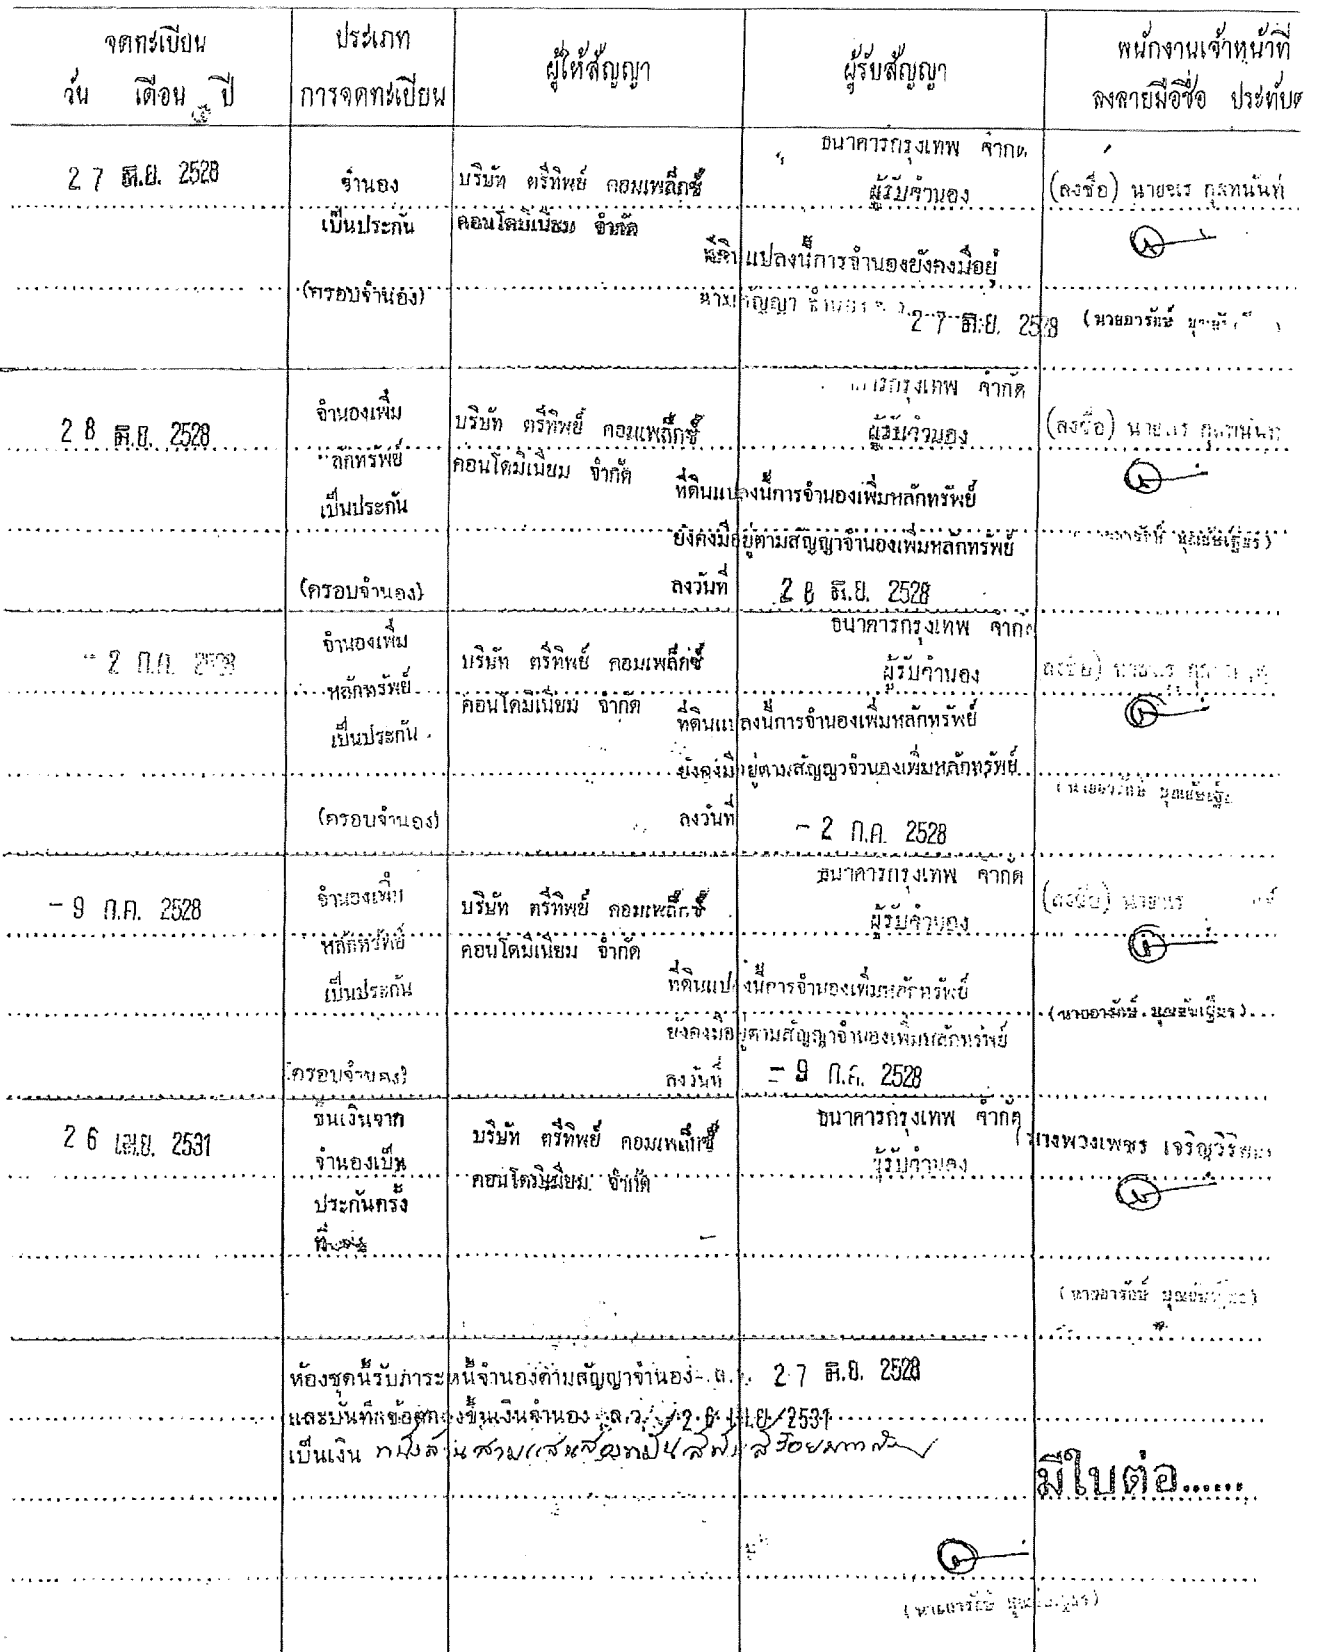 จดทะเบียน
วัน เดือน ปี
ประเภท
การจดทะเบียน
ผู้ให้สัญญา
ผู้รับสัญญา
พนักงานเจ้าหน้าที่
ลงลายมือชื่อ ประทับต
27 มิ.ย. 2528
จำนอง
เป็นประกัน
(ครอบจำนอง)
บริษัท ตรีทิพย์ คอมเพล็กซ์
คอนโดมิเนียม จำกัด
ธนาคารกรุงเทพ จำกัด
ผู้รับจำนอง
ที่ดินแปลงนี้การจำนองยังคงมีอยู่
ตามสัญญา จำนอง
27 มิ.ย. 2528
(ลงชื่อ) นายนเร กุลทนันท์
(นายอารักษ์
28 มิ.ย. 2528
จำนองเพิ่ม
หลักทรัพย์
เป็นประกัน
(ครอบจำนอง)
บริษัท ตรีทิพย์ คอมเพล็กซ์
คอนโดมิเนียม จำกัด
กรุงเทพ จำกัด
ผู้รับจำนอง
ที่ดินแปลงนี้การจำนองเพิ่มหลักทรัพย์
ยังคงมีอยู่ตามสัญญาจำนองเพิ่มหลักทรัพย์
ลงวันที่ 28 มิ.ย. 2528
(ลงชื่อ)
- 2 ก.ค. 2528
จำนองเพิ่ม
หลักทรัพย์
เป็นประกัน
(ครอบจำนอง)
บริษัท ตรีทิพย์ คอมเพล็กซ์
คอนโดมิเนียม จำกัด
ธนาคารกรุงเทพ จำกัด
ผู้รับจำนอง
ที่ดินแปลงนี้การจำนองเพิ่มหลักทรัพย์
ยังคงมีอยู่ตามสัญญาจำนองเพิ่มหลักทรัพย์
ลงวันที่ - 2 ก.ค. 2528
ลงชื่อ)
- 9 ก.ค. 2528
จำนองเพิ่ม
หลักทรัพย์
เป็นประกัน
(ครอบจำนอง)
บริษัท ตรีทิพย์ คอมเพล็กซ์
คอนโดมิเนียม จำกัด
ธนาคารกรุงเทพ จำกัด
ผู้รับจำนอง
ที่ดินแปลงนี้การจำนองเพิ่มหลักทรัพย์
ยังคงมีอยู่ตามสัญญาจำนองเพิ่มหลักทรัพย์
ลงวันที่ - 9 ก.ค. 2528
(ลงชื่อ)
(นายอารักษ์
26 เม.ย. 2531
ขึ้นเงินจาก
จำนองเป็น
ประกันครั้ง
บริษัท ตรีทิพย์ คอมเพล็กซ์
คอนโดมิเนียม จำกัด
ธนาคารกรุงเทพ จำกัด
ผู้รับจำนอง
(นางพวงเพชร
(นายอารักษ์
ห้องชุดนี้รับภาระหนี้จำนองตามสัญญาจำนอง 27 มิ.ย. 2528
และบันทึกข้อตกลงขึ้นเงินจำนอง ล.ว. 26 เม.ย. 2531
เป็นเงิน
มีใบต่อ......